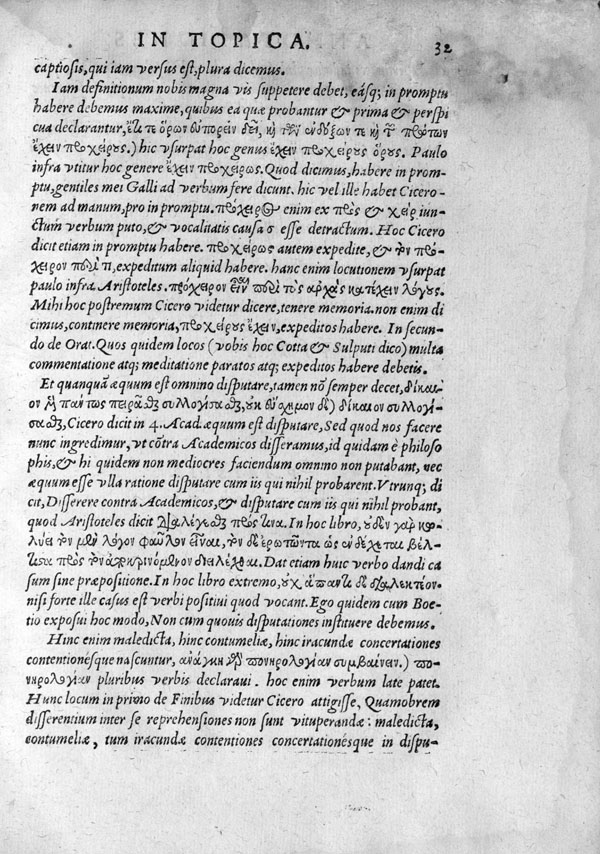 IN TOPICA. 32
captiosis, qui iam versus est, plura dicemus.
Iam definitionum nobis magna vis suppetere debet, eásq; in promptu
habere debemus maxime, quibus ea quæ probantur & prima & perspi
cua declarantur, ἔτι τε ὅρων εὐπορεῖν δεῖ, καὶ τῶν ἐνδόξων τε καὶ τῶν πρώτων
ἔχειν προχείρους.) hic vsurpat hoc genus ἔχειν προχείρους ὅρους. Paulo
infra vtitur hoc genere ἔχειν προχείρως. Quod dicimus, habere in prom-
ptu, gentiles mei Galli ad verbum fere dicunt. hic vel ille habet Cicero-
nem ad manum, pro in promptu. πρόχειρος enim ex πρὸς & χεὶρ iun-
ctum verbum puto, & vocalitatis causa σ esse detractum. Hoc Cicero
dicit etiam in promptu habere. προχείρως autem expedite, & τὸν πρό-
χειρον ποιεῖ τι, expeditum aliquid habere. hanc enim locutionem vsurpat
paulo infra Aristoteles. πρόχειρον εἶναι ποιεῖ τις ἀρχὰς κατέχειν λόγους.
Mihi hoc postremum Cicero videtur dicere, tenere memoria. non enim di
cimus, continere memoria, προχείρους ἔχειν, expeditos habere. In secun-
do de Orat. Quos quidem locos (vobis hoc Cotta & Sulpiti dico) multa
commentatione atq; meditatione paratos atq; expeditos habere debetis.
Et quanquā æquum est omnino disputare, tamen nō semper decet, δίκαι-
ον ἢ πάντως πειρᾶσθαι συλλογίσασθαι, οὐκ εὔσχημον δέ) δίκαιον συλλογί-
σασθαι, Cicero dicit in 4. Acad. æquum est disputare, Sed quod nos facere
nunc ingredimur, vt cōtra Academicos disseramus, id quidam è philoso
phis, & hi quidem non mediocres faciendum omnino non putabant, nec
æquum esse vlla ratione disputare cum iis qui nihil probarent. Vtrunq; di
cit, Disserere contra Academicos, & disputare cum iis qui nihil probant,
quod Aristoteles dicit διαλέγεσθαι πρός τινα. In hoc libro, οὐδὲν γὰρ κω-
λύει τὸν μὲν λόγον φαῦλον εἶναι, τὸν δὲ ἐρωτῶντα ὡς ἐνδέχεται βέλ-
τιστα πρὸς τὸν ἀποκρινόμενον διαλέχθαι. Dat etiam huic verbo dandi ca
sum sine præpositione. In hoc libro extremo, οὐχ ἅπαντι δὲ διαλεκτέον.
nisi forte ille casus est verbi positiui quod vocant. Ego quidem cum Boe-
tio exposui hoc modo, Non cum quouis disputationes instituere debemus.
Hinc enim maledicta, hinc contumeliæ, hinc iracundæ concertationes
contentionésque nascuntur, ἀνάγκη γὰρ πονηρολογίαν συμβαίνειν.) πο-
νηρολογίαν pluribus verbis declaraui. hoc enim verbum late patet.
Hunc locum in primo de Finibus videtur Cicero attigisse, Quamobrem
differentium inter se reprehensiones non sunt vituperandæ: maledicta,
contumeliæ, tum iracundæ contentiones concertationésque in dispu-